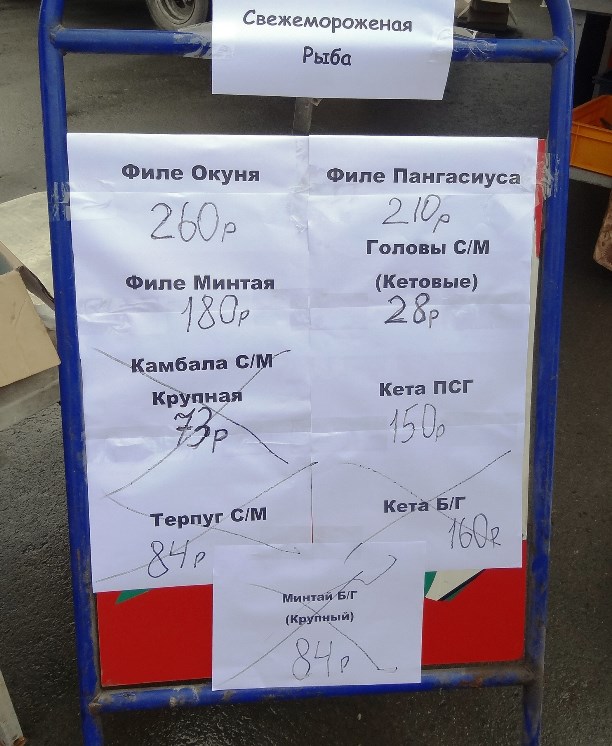 Свежемороженая
Рыба
Филе Окуня
260р
Филе Минтая
180р
Камбала С/М
Крупная
73р
Терпуг С/М
84р
Филе Пангасиуса
210р
Головы С/М
(Кетовые)
28р
Кета ПСГ
150р
Кета Б/Г
160р
Минтай Б/Г
(Крупный)
84р